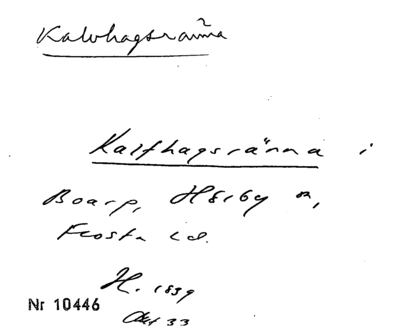 Kalvhagsränna
Kalfhagsränna i
Boarp, Hörby sn,
Frosta hd.
H. 1839
Akt 33
Nr 10446